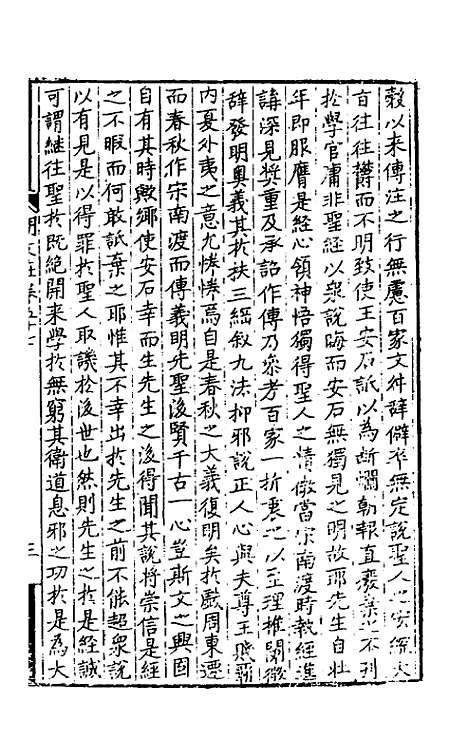 穀以來傳注之行無慮百家文舛辭僻卒無定說聖人之宏綱大
旨往往欝而不明致使王安石詆以為斷爛朝報直廢棄之不列
於學官庸非聖經以衆說晦而安石無獨見之明故耶先生自壯
年即服膺是經心領神悟獨得聖人之情儆當宋南渡時執經進
講深見奬重及承詔作傳乃叅考百家一折衷之以至理推闡微
辭發明奧義其於扶三綱叙九法抑邪說正人心與夫尊王賤霸
内夏外夷之意尤惓惓焉自是春秋之大義復明矣於戲周東遷
而春秋作宋南渡而傳義明先聖後賢千古一心豈斯文之興固
自有其時歟鄉使安石幸而生先生之後得聞其說將崇信是經
之不暇而何敢詆棄之耶惟其不幸出於先生之前不能超衆說
以有見是以得罪於聖人取譏於後世也然則先生之於是經誠
可謂繼往聖於既絶開來學於無窮其衛道息邪之功於是為大
明文在卷五十七
三